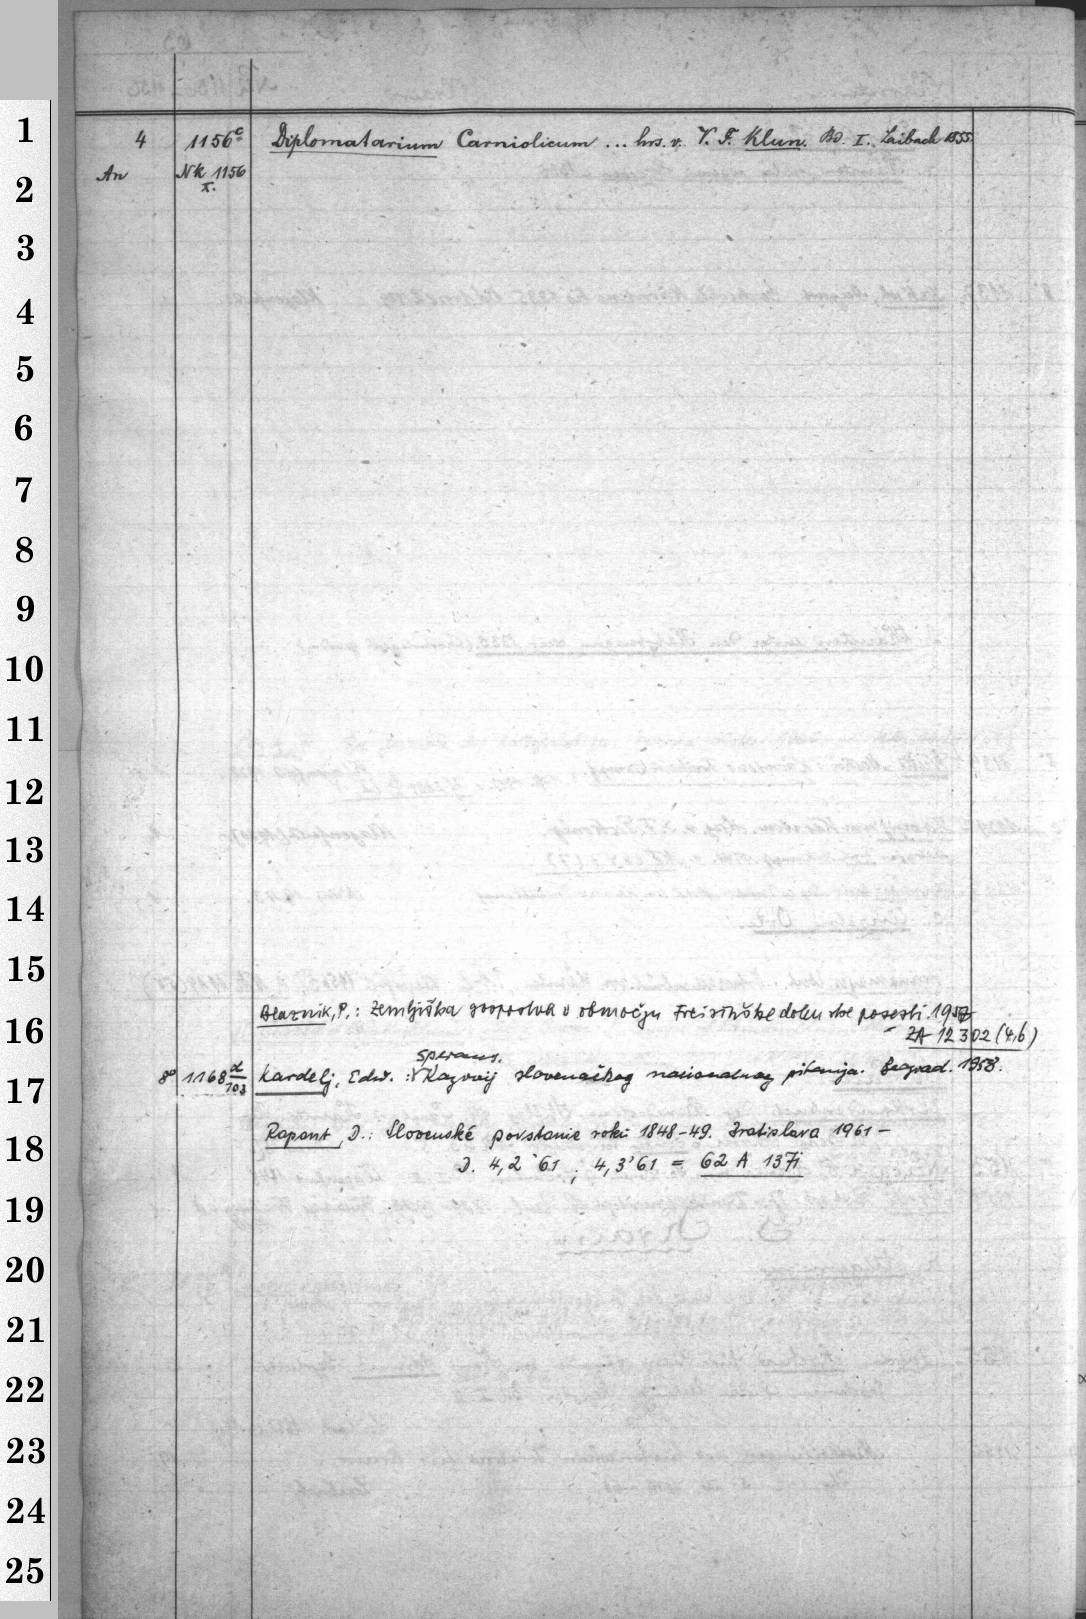 1
2
3
4
5
6
7
8
9
10
11
12
13
14
15
16
17
18
19
20
21
22
23
24
25
4 1156c Diplomatarium Carniolicum ... hrs. v. V. F. Klun. Bd. I. Laibach 1855
An Nk 1156
x.
Blaznik, P.: Zemljiška gospostva v območju Freisinške dolenjske posesti. 1957
ZA 12302 (4,6)
sperans.
8° 1168 d/703 Kardelj, Edv. : Razvoij slovenačkog nacionalnog pitanja. Beograd. 1958.
Rapant, D.: Slovenské povstanie roku 1848-49. Bratislava 1961 –
D. 4,2 '61 ; 4,3'61 = 62 A 1371